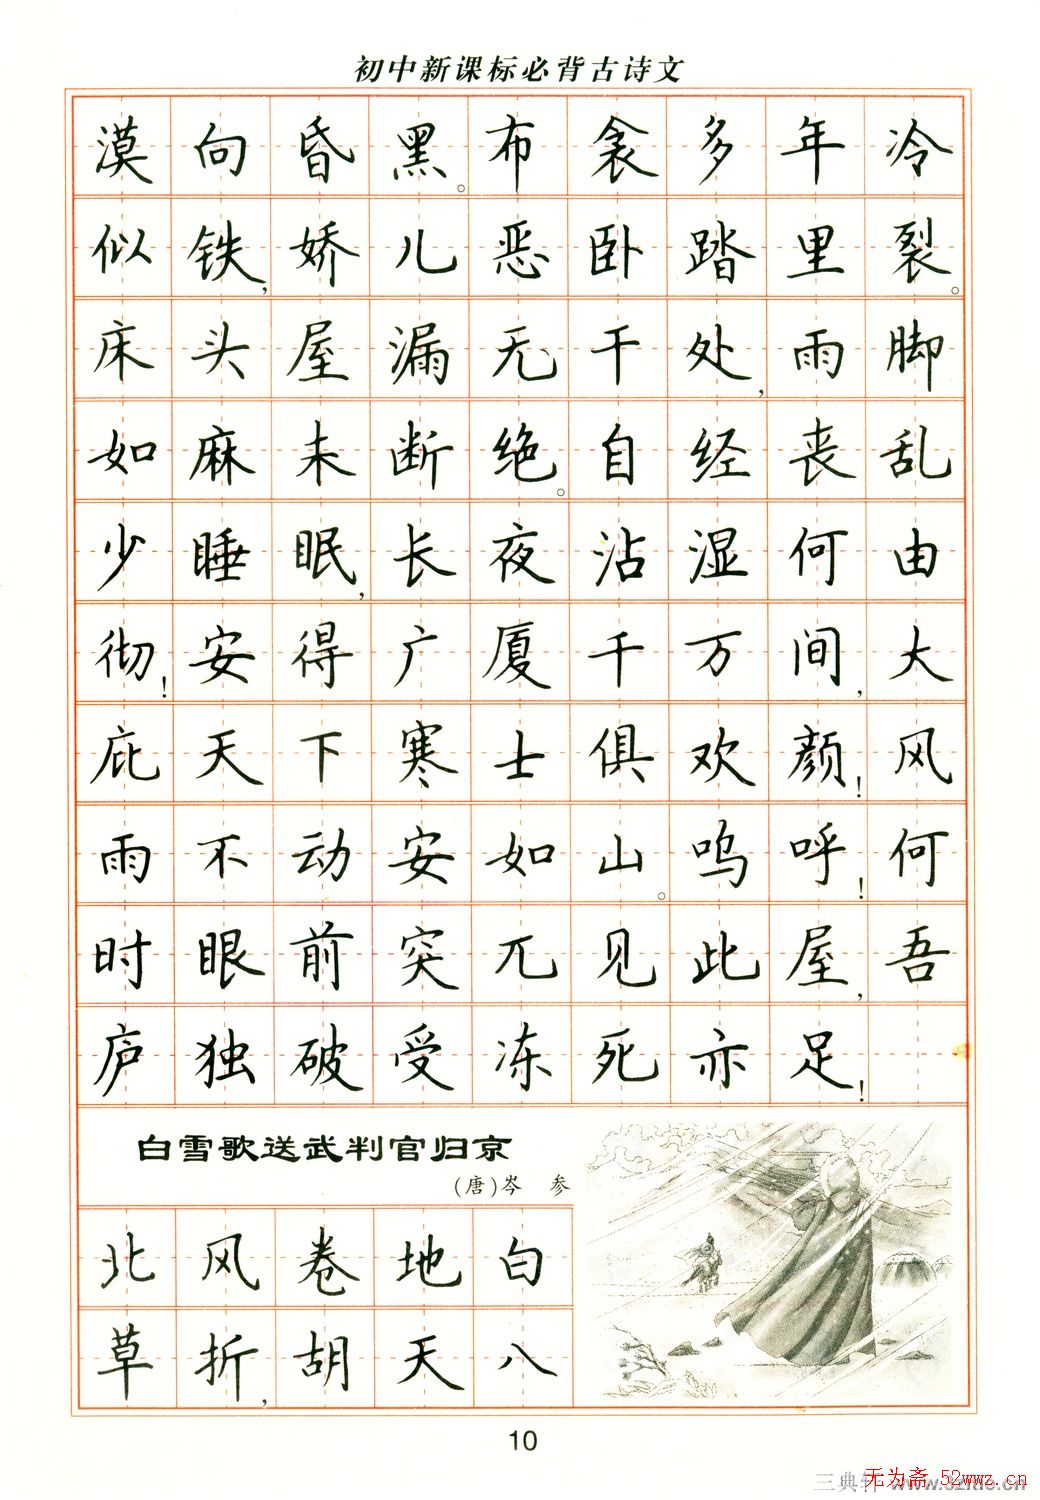 初中新课标必背古诗文
漠向昏黑。布衾多年冷
似铁,娇儿恶卧踏里裂。
床头屋漏无干处,雨脚
如麻未断绝。自经丧乱
少睡眠,长夜沾湿何由
彻!安得广厦千万间,大
庇天下寒士俱欢颜!风
雨不动安如山。呜呼!何
时眼前突兀见此屋,吾
庐独破受冻死亦足!
白雪歌送武判官归京
(唐)岑 参
北风卷地白
草折,胡天八
10
无为斋 52wwz.cn